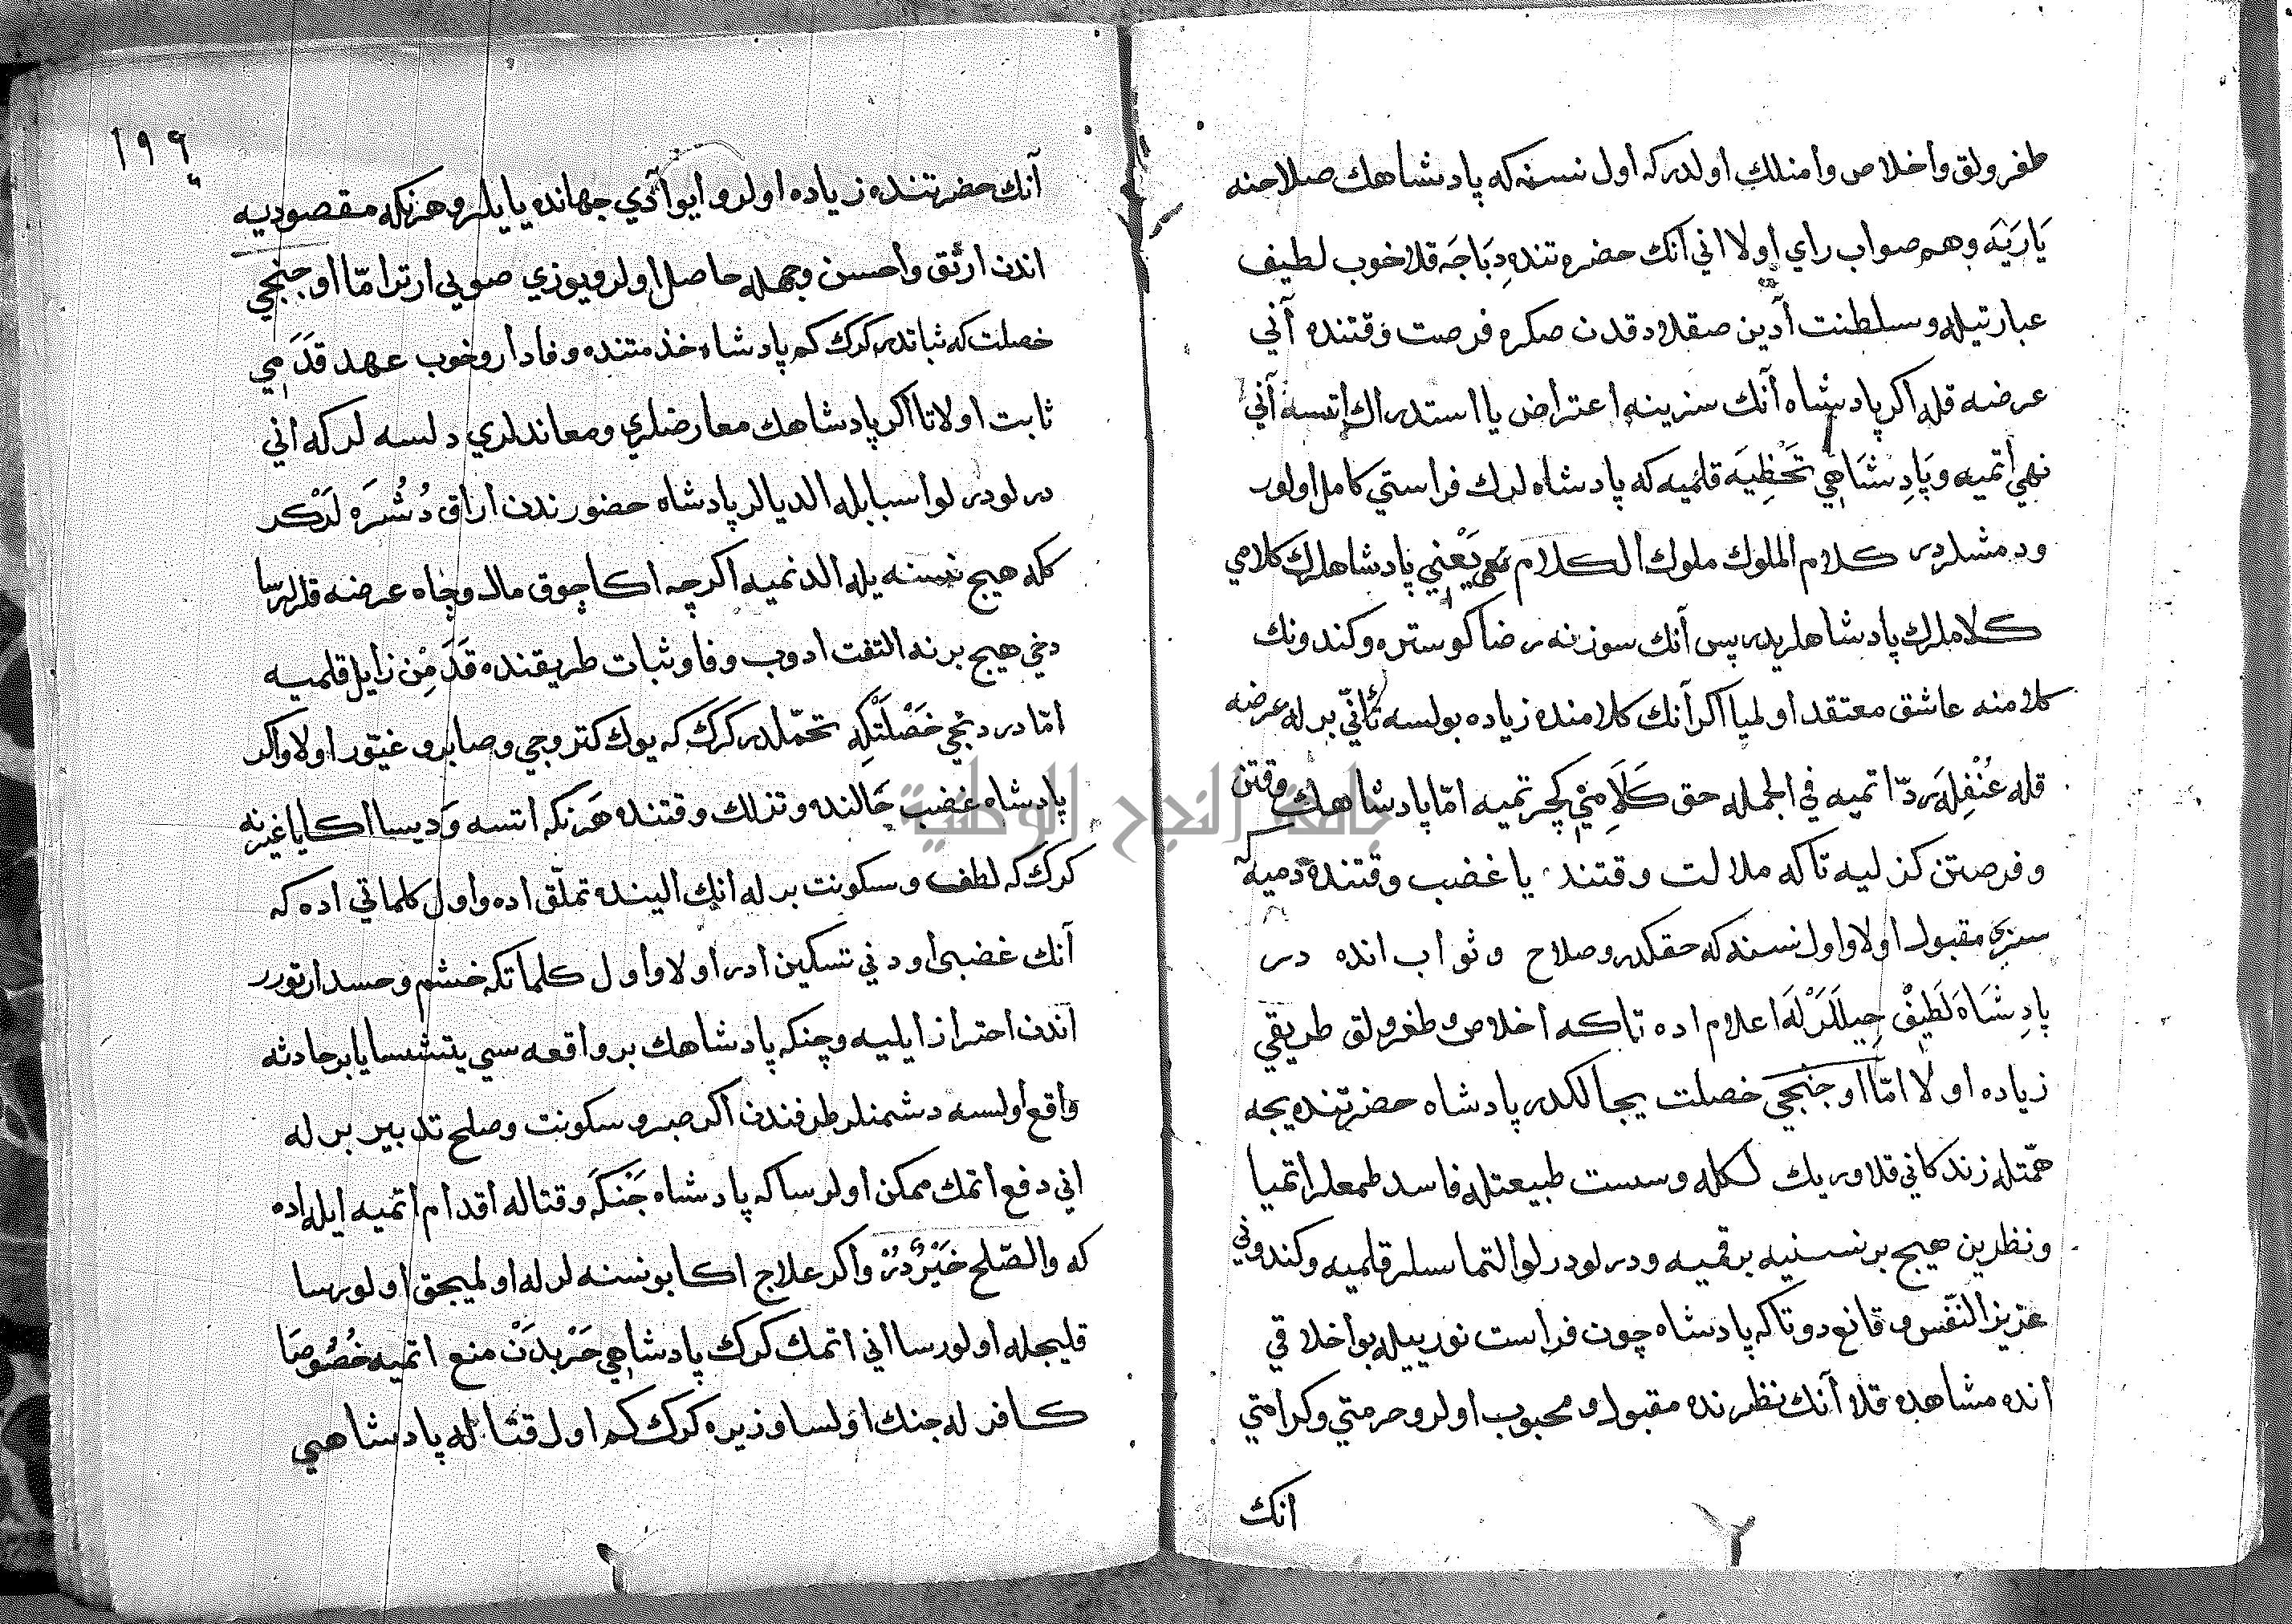 طغرولق واخلاص وامنلك اولدر كه اول نسنه كه پادشاهك صلاحنه
يَارَيَه وهم صواب راي اولا اني آنك حضرتنده دِبَاجَه قلا خوب لطيف
عبارتيله وسلطنت آدين صقلادقدن صكره فرصت وقتنده آني
عرضه قله اكر پادشاه آنك سزينه اعتراض يا استدراك اتسه آني
نهي اتميه وپَادِشَاهِي تَخْظِيَه قلميه كه پادشاه لرك فراستي كامل اولور
ودمشلردر كلام الملوك ملوك الكلام يَعْنِي پادشاهلرك كلامي
كلاملرك پادشاهلريدر پس آنك سوزنه رضا كوستره وكندونك
كلامنه عاشق معتقد اولميا اكر آنك كلامنده زياده بولسه تأني بر له عرضه
قله عُنْفِلَه ردّ اتميه في الجمله حق كَلَامِنِي كچرتميه امّا پادشاهك وقتن
وفرصتن كزليه تا كه ملالت وقتند يا غضب وقتنده دميه كه
سزي مقبول اولا واول نسنه كه حقكدر وصلاح وثواب انده در
پادِشَاه لَطِيفْ حِيلَلَرْلَه اعلام اده تا كه اخلاص وطغرولق طريقي
زياده اولا امّا اوجنجي خصلت يجالكدر پادشاه حضرتنده يجه
همّتله زندكاني قلا وريك لكله وسست طبيعتله فاسد طمعلر اتميا
ونظرين هيج بر نسنيه برقميه ودرلو درلو التماسلر قلميه وكندوني
عزيز النّفس وقانع دوتا كه پادشاه چون فراست نوريله بو اخلاقي
انده مشاهده قلا آنك نظرنده مقبول ومحبوب اولر وحرمتي وكرامتي
انك
١٩٦
آنك حضرتنده زياده اولر وايو آدي جهانده يايلر وهر نكه مقصوديه
اندن ارتق واحسن وجهله حاصل اولر ويوزي صويي ارتر امّا اوجنجي
خصلت كه ثباتدر كرك كم پادشاه خذمتنده وفادار وخوب عهد قَدَمِي
ثابت اولا تا اكر پادشاهك معارضلري ومعاندلري دلسه لر كه اني
درلو درلو اسبابله الديالر پادشاه حضورندن اراق دُشُرَه لَرْكر
كله هيج نسنه يله الدنميه اكرچه اكا چوق مال وجاه عرضه قلرلرسا
دخي هيج برنه التفت ادوب وفا وثبات طريقنده قَدَمِن زايل قلميه
امّا دردنجي خَصْلَتْكِه تحمّلدر كرك كه يوك كتروجي وصابر وغيّور اولا واكر
پادشاه غضب حَالنده وتزلك وقتنده هَر نكه اتسه وَديسا اكا يا غيرنه
كرك كه لطف وسكونت بر له انك الينده تملّق اده واول كلماتي اده كه
آنك غضبي اودني تسكين ادر اولا واول كلماتكه خشم وحسد ارتورر
اندن احتراز ايليه وچنكه پادشاهك بر واقعه سي يتشسا يا بر حادثه
واقع اولسه دشمنلر طرفندن اكر صبر وسكونت وصلح تدبير بر له
اني دفع اتمك ممكن اولرسا كه پادشاه جَنْكَه وقتاله اقدام اتميه ايله اده
كه والصّلح خَيْرٌدُرْ واكر علاج اكا بو نسنه لر له اولميجق اولورسا
قليجله اولورسا اني اتمك كرك پادشاهي حَرْبدَنْ منع اتميه خُصُوصَا
كافر له جنك اولسا وزيره كرك كم اول قتاله پادشاهي